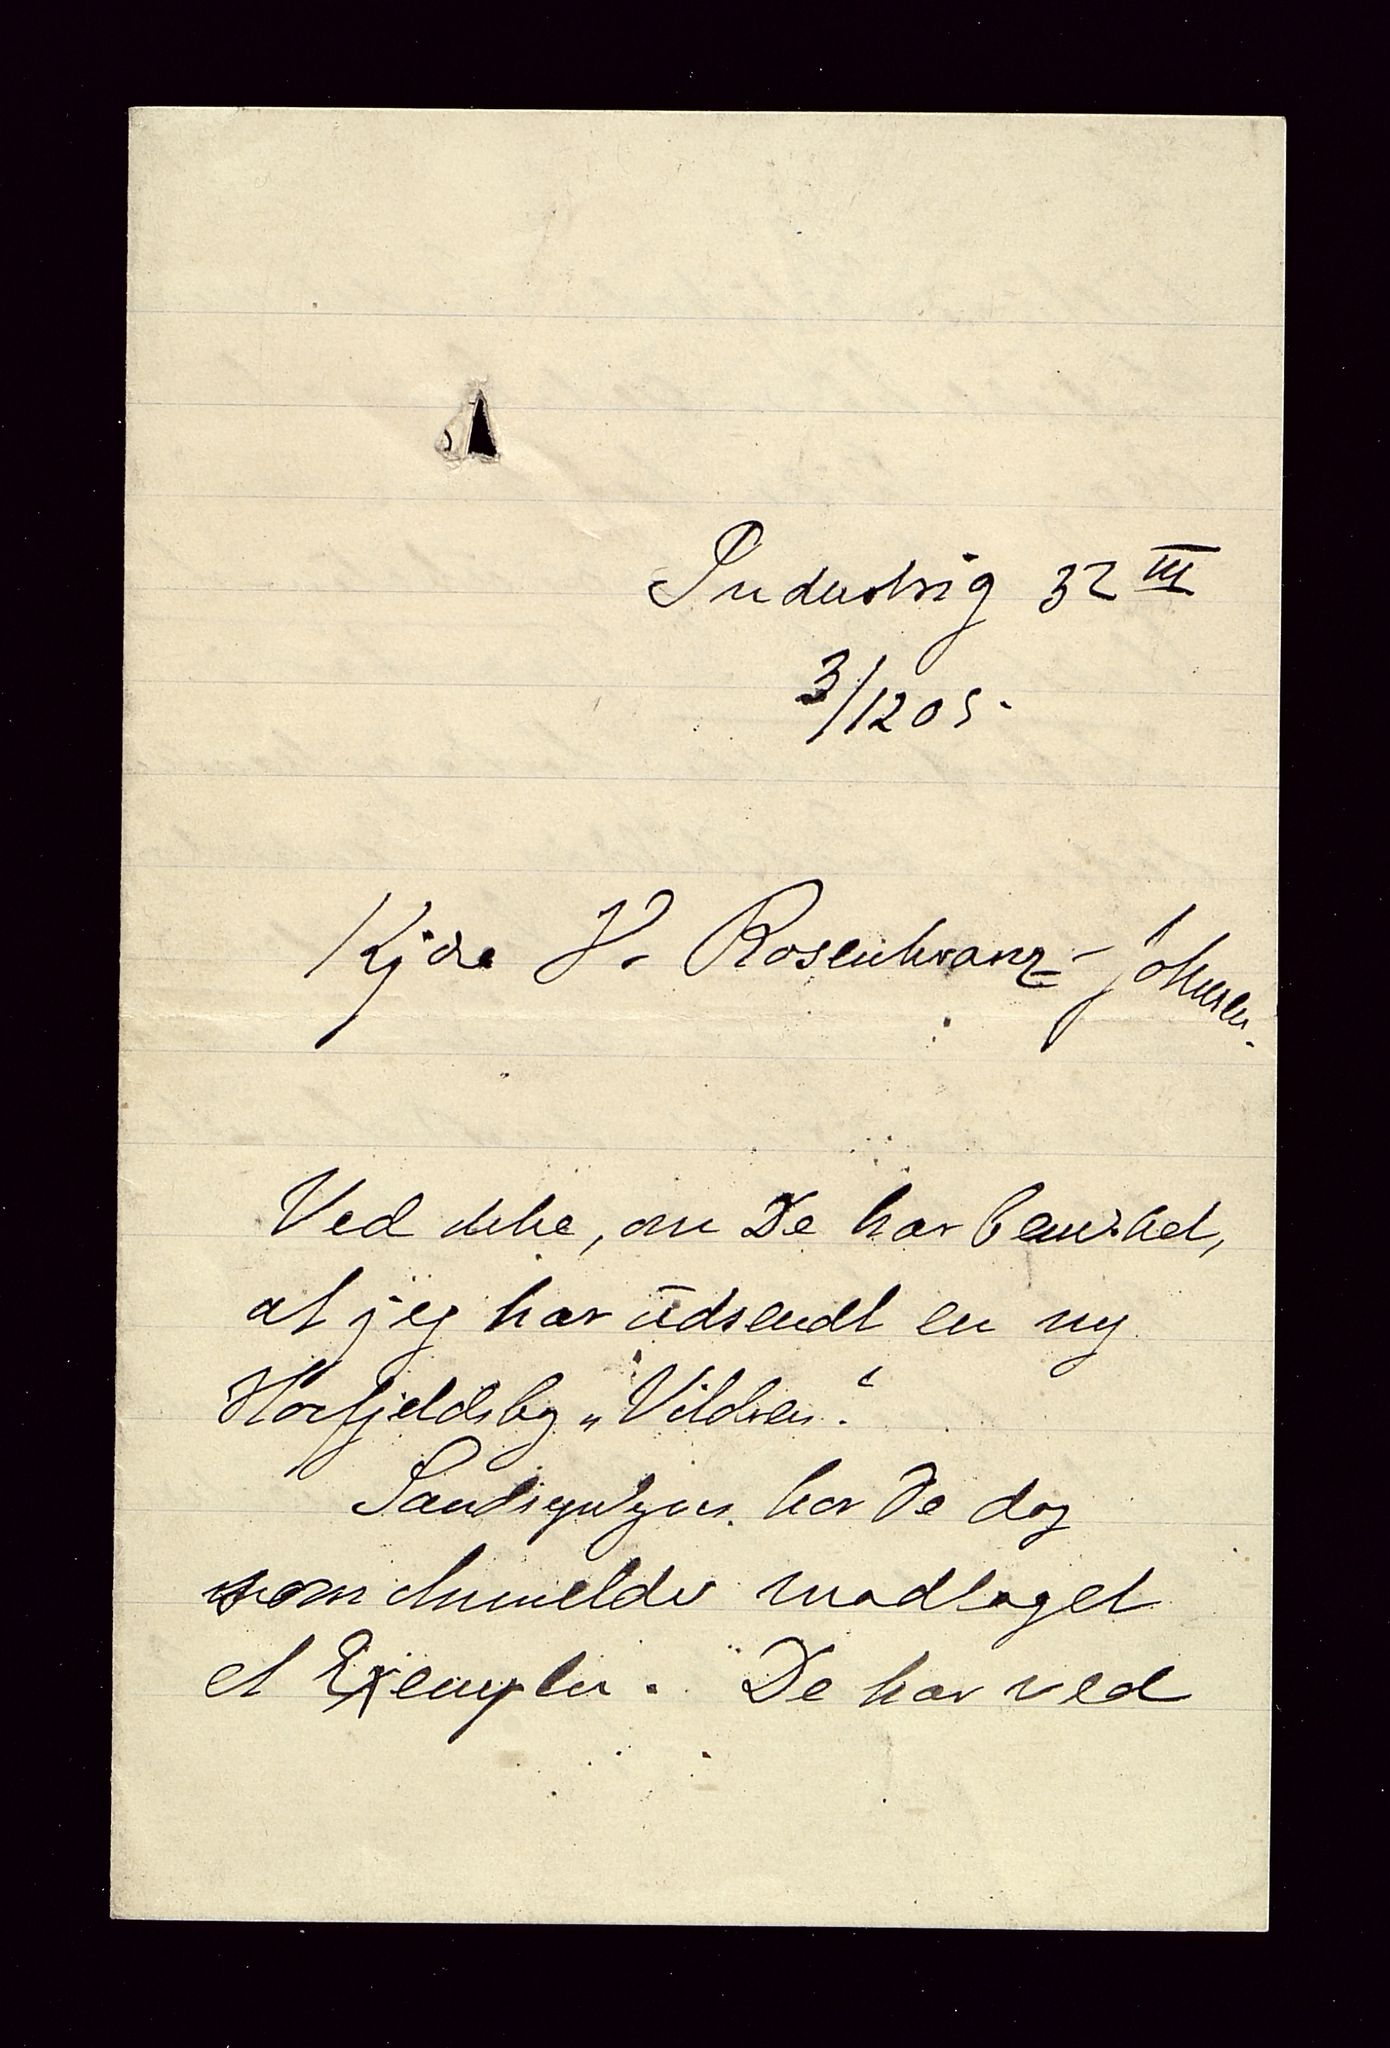 Industrig 32 III
3/12 05.
Kjære Hr Rosenkranz-Johnsen.
Ved ikke, om De har bemærket,
at jeg har udsendt en ny
Høifjeldsbog „Vildren“.
Sandsynligvis har De dog
som Anmelder modtaget
et Exemplar. De har ved